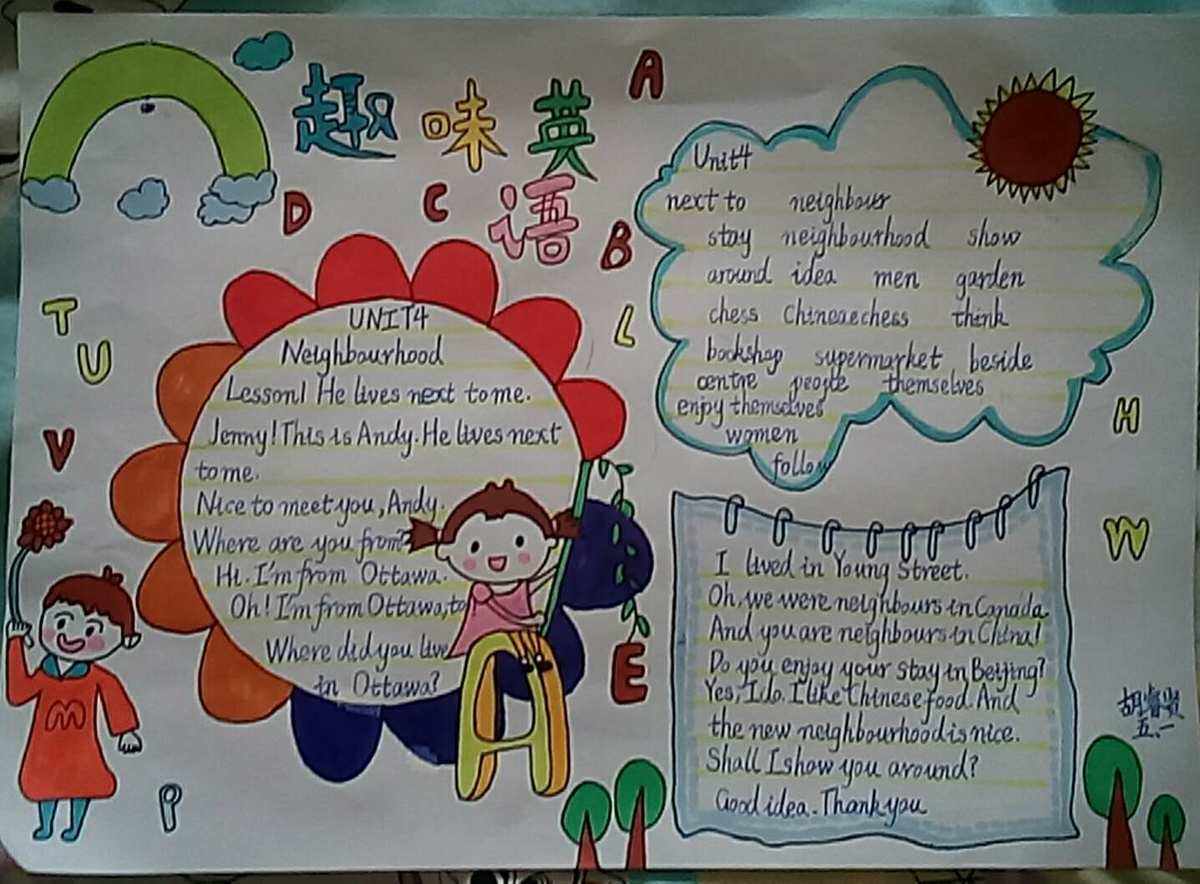 趣味英
语
A
D
C
B
T
U
L
V
H
W
E
P
M
UNIT4
Neighbourhood
Lesson1 He lives next to me.
Jenny! This is Andy. He lives next
to me.
Nice to meet you, Andy.
Where are you from?
Hi. I'm from Ottawa.
Oh! I'm from Ottawa, to
Where did you live
in Ottawa?
Unit4
next to neighbour
stay neighbourhood show
around idea men garden
chess Chineaechess think
bookshop supermarket beside
centre people themselves
enjoy themselves
women
follow
I lived in Young Street.
Oh, we were neighbours in Canada.
And you are neighbours in China!
Do you enjoy your stay in Beijing?
Yes, I do. I like Chinese food. And
the new neighbourhood is nice.
Shall I show you around?
Good idea. Thank you
五、一